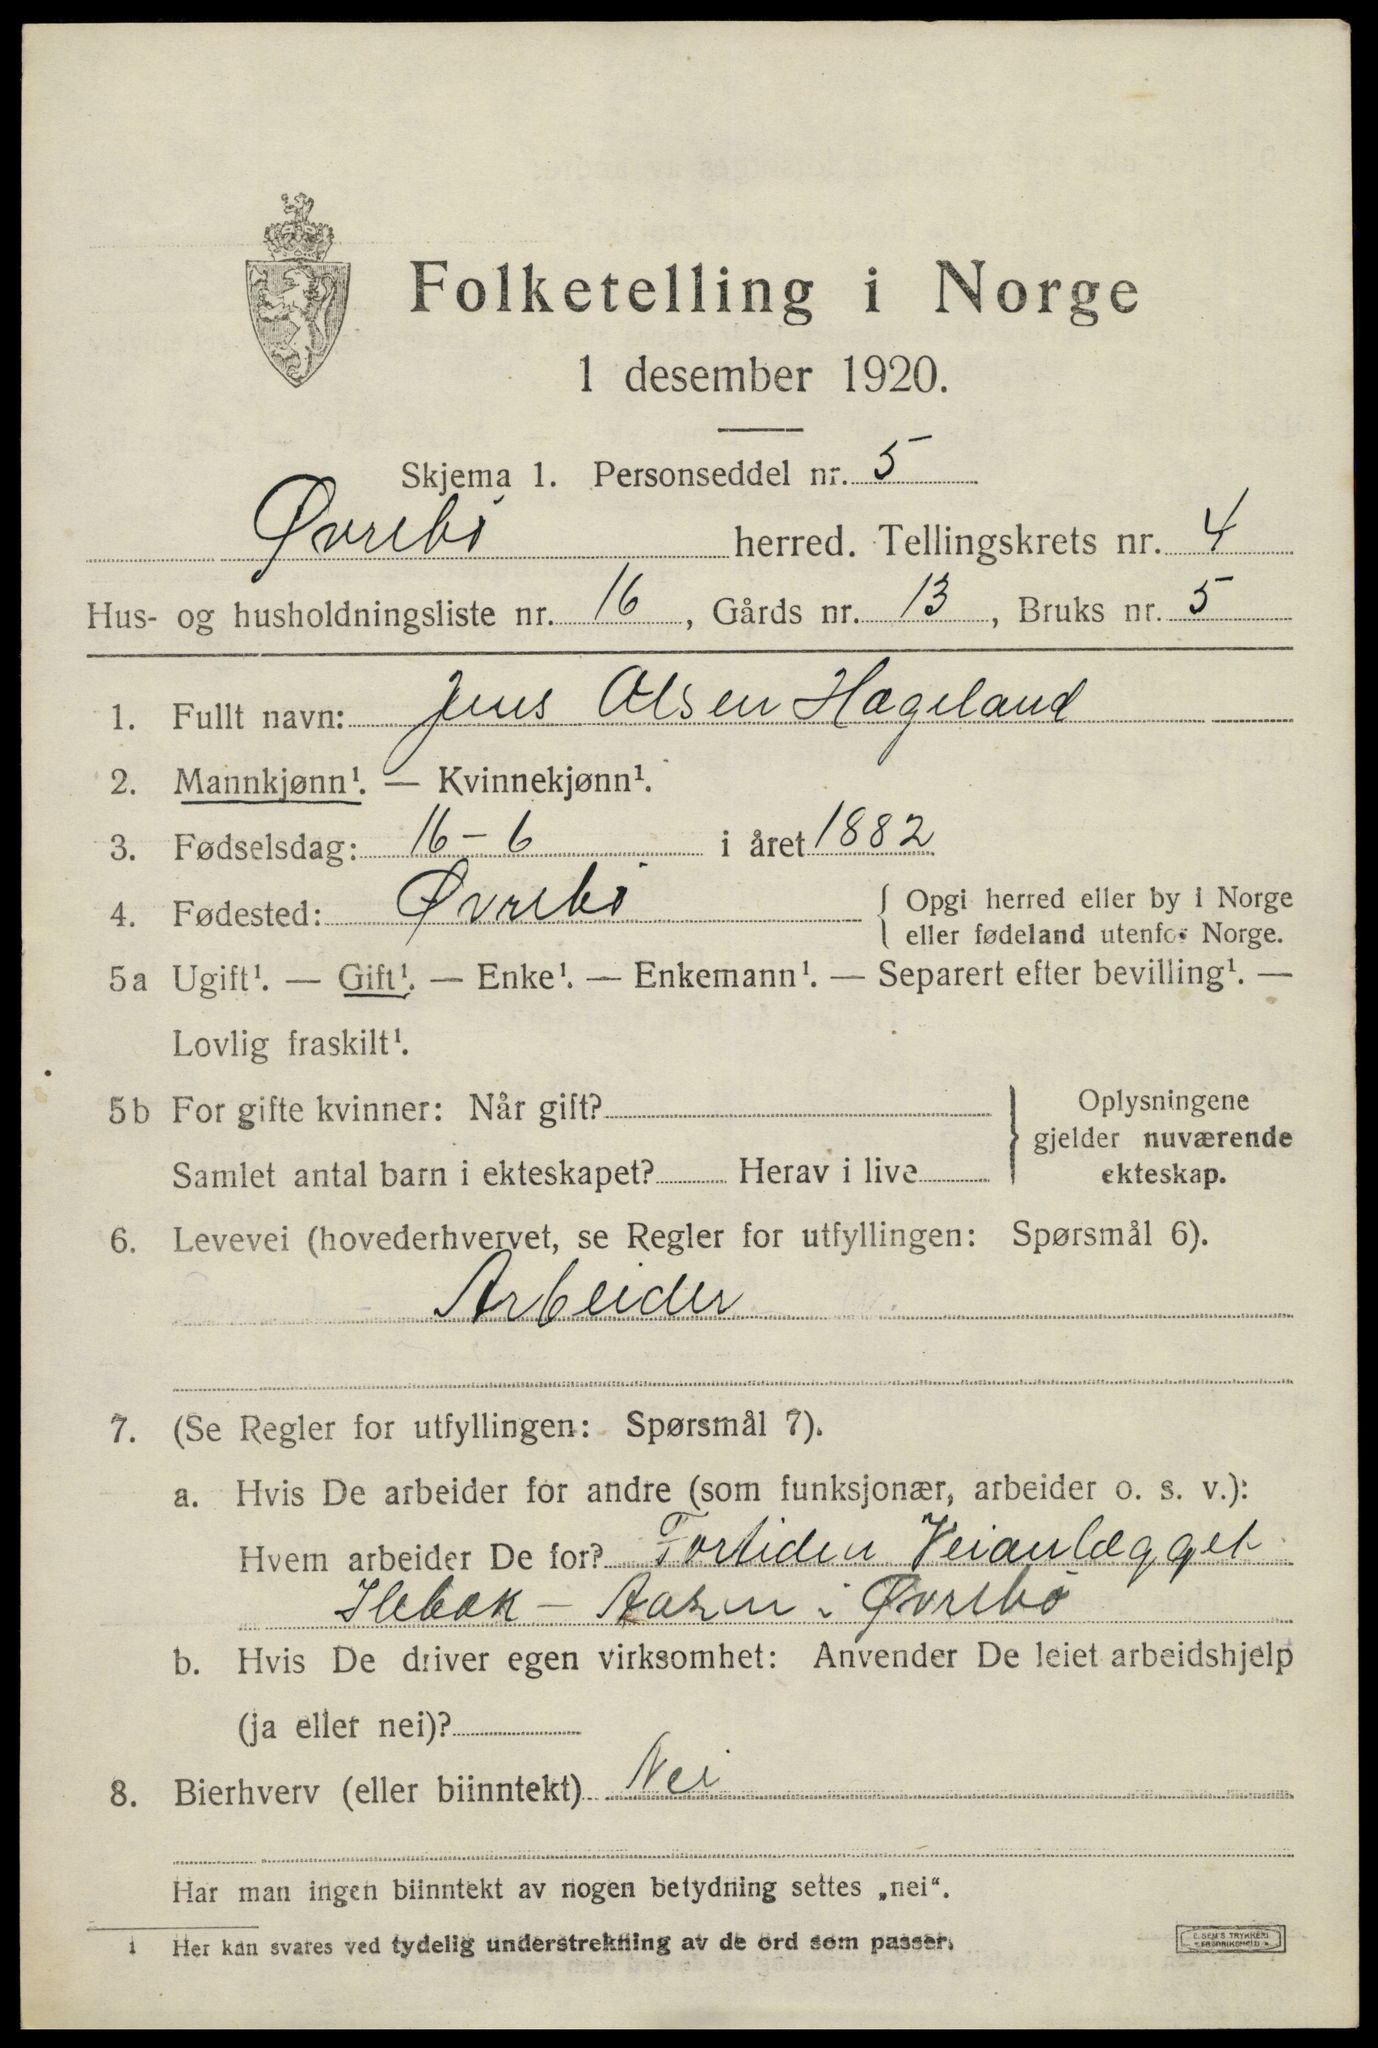 Folketelling i Norge
1 desember 1920.
Skjema 1. Personseddel nr. 5
Øvrebö herred. Tellingskrets nr. 4
Hus- og husholdningsliste nr. 16, Gårds nr. 13, Bruks nr. 5
1. Fullt navn: Jens Olsen Hægeland
2. Mannkjønn¹. — Kvinnekjønn¹.
3. Fødselsdag: 16-6 i året 1882
4. Fødested: Øvrebö { Opgi herred eller by i Norge
eller fødeland utenfor Norge.
5a Ugift¹. — Gift¹. — Enke¹. — Enkemann¹. — Separert efter bevilling¹. —
Lovlig fraskilt¹.
5b For gifte kvinner: Når gift?
Samlet antal barn i ekteskapet? Herav i live
} Oplysningene
gjelder nuværende
ekteskap.
6. Levevei (hovederhvervet, se Regler for utfyllingen: Spørsmål 6).
Arbeider
7. (Se Regler for utfyllingen: Spørsmål 7).
a. Hvis De arbeider for andre (som funksjonær, arbeider o. s. v.):
Hvem arbeider De for? Fortiden Veianlægget
Ilebæk - Aasen i Øvrebö
b. Hvis De driver egen virksomhet: Anvender De leiet arbeidshjelp
(ja eller nei)?
8. Bierhverv (eller biinntekt) Nei
Har man ingen biinntekt av nogen betydning settes „nei“.
1 Her kan svares ved tydelig understrekning av de ord som passer.
E. SEM'S TRYKKERI
FREDRIKSHALD